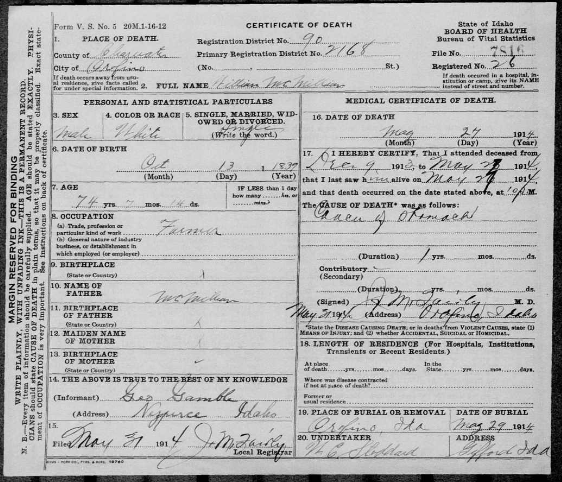 Form V. S. No. 5 20M.1-16-12
CERTIFICATE OF DEATH
State of Idaho
BOARD OF HEALTH
Bureau of Vital Statistics
1. PLACE OF DEATH
County of
City of
If death occurs away from usual residence, give facts called for under special information.
Registration District No. 90
Primary Registration District No. 2168
(No. St.)
File No. 7816
Registered No. 26
If death occurred in a hospital, institution or camp, give its NAME instead of street and number.
2. FULL NAME William McMillan
PERSONAL AND STATISTICAL PARTICULARS
3. SEX
male
4. COLOR OR RACE
White
5. SINGLE, MARRIED, WIDOWED OR DIVORCED.
Single
(Write the word.)
6. DATE OF BIRTH
Oct 13 1839
(Month) (Day) (Year)
7. AGE
74 yrs. 7 mos. 14 ds.
IF LESS than 1 day
how many hrs. or min.?
8. OCCUPATION
(a) Trade, profession or particular kind of work
Farmer
(b) General nature of industry business, or establishment in which employed (or employer)
9. BIRTHPLACE
(State or Country)
10. NAME OF FATHER
McMillan
11. BIRTHPLACE OF FATHER
(State or Country)
12. MAIDEN NAME OF MOTHER
13. BIRTHPLACE OF MOTHER
(State or Country)
14. THE ABOVE IS TRUE TO THE BEST OF MY KNOWLEDGE
(Informant) Geo Gamble
(Address) Nezperce Idaho
15.
Filed May 31 1914 J. M. Fairly
Local Registrar
MEDICAL CERTIFICATE OF DEATH
16. DATE OF DEATH
May 27 1914
(Month) (Day) (Year)
17. I HEREBY CERTIFY, That I attended deceased from
Dec 9 1913, to May 1914
that I last saw him alive on May 1914
and that death occurred on the date stated above, at M.
The CAUSE OF DEATH* was as follows:
Cancer of Stomach
(Duration) 1 yrs. mos. ds.
Contributory
(Secondary)
(Duration) yrs. mos. ds.
(Signed) J. M. Fairly M. D.
May 1914 (Address) Orofino, Idaho
*State the DISEASE CAUSING DEATH, or in deaths from VIOLENT CAUSES, state (1) MEANS OF INJURY; and (2) whether ACCIDENTAL, SUICIDAL or HOMICIDAL.
18. LENGTH OF RESIDENCE (For Hospitals, Institutions, Transients or Recent Residents.)
At place of death yrs. mos. days. In the State yrs. mos. days.
Where was disease contracted if not at place of death?
Former or usual residence
19. PLACE OF BURIAL OR REMOVAL
Orofino Ida
DATE OF BURIAL
May 29 1914
20. UNDERTAKER
W. E. Stoddard
ADDRESS
Ida
MARGIN RESERVED FOR BINDING
WRITE PLAINLY, WITH UNFADING INK—THIS IS A PERMANENT RECORD.
N. B.—Every item of information should be carefully supplied. AGE should be stated EXACTLY. PHYSICIANS should state CAUSE OF DEATH in plain terms, so that it may be properly classified. Exact statement of OCCUPATION is very important. See instructions on back of certificate.